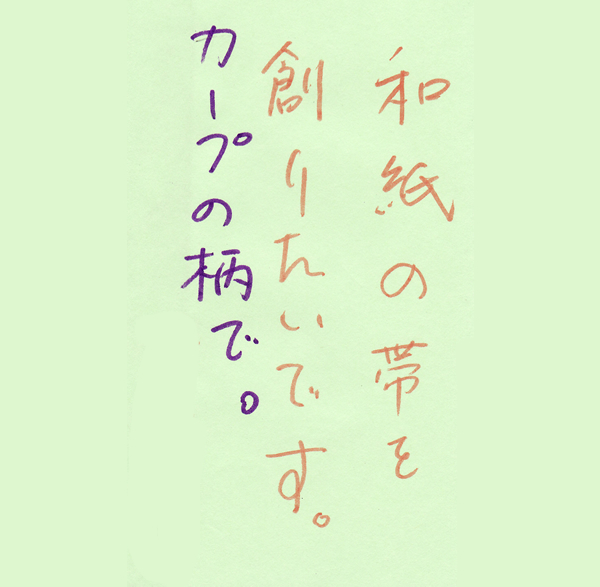 和紙の帯を
創りたいです。
カープの柄で。